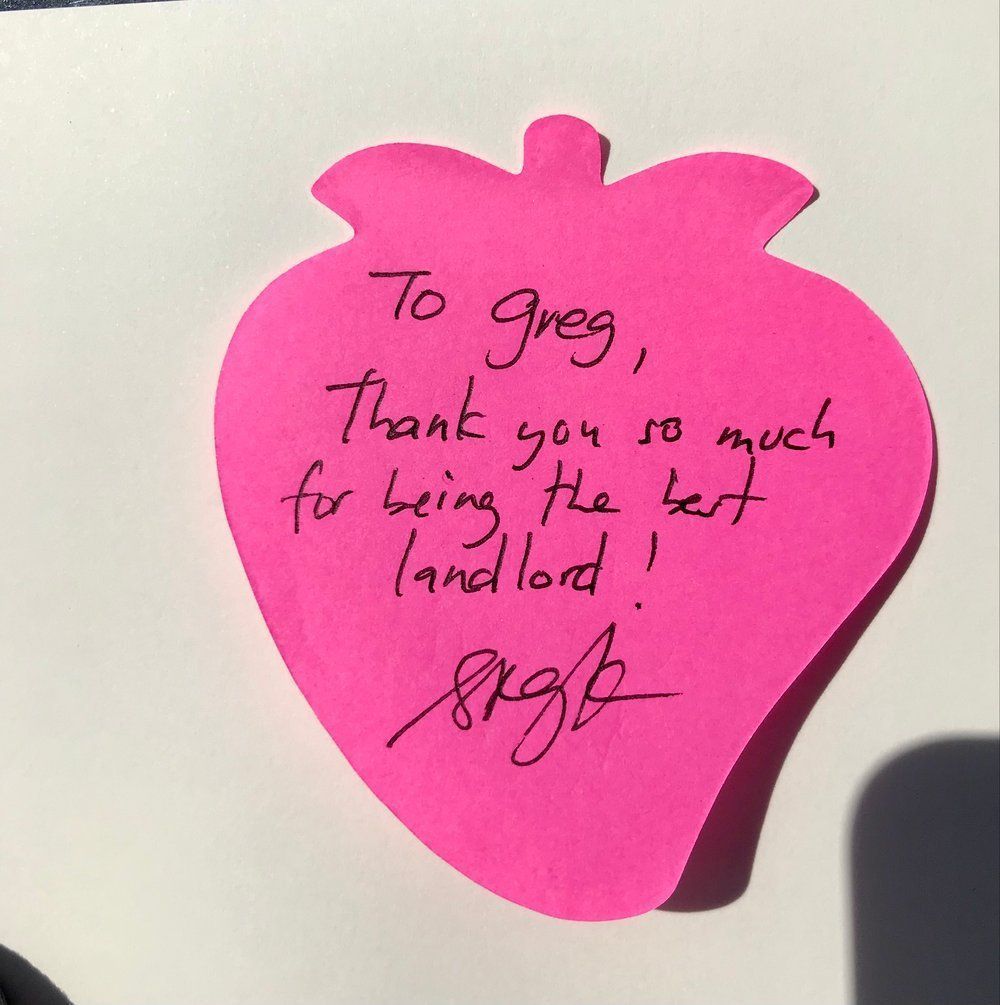 To Greg,
Thank you so much
for being the best
landlord!